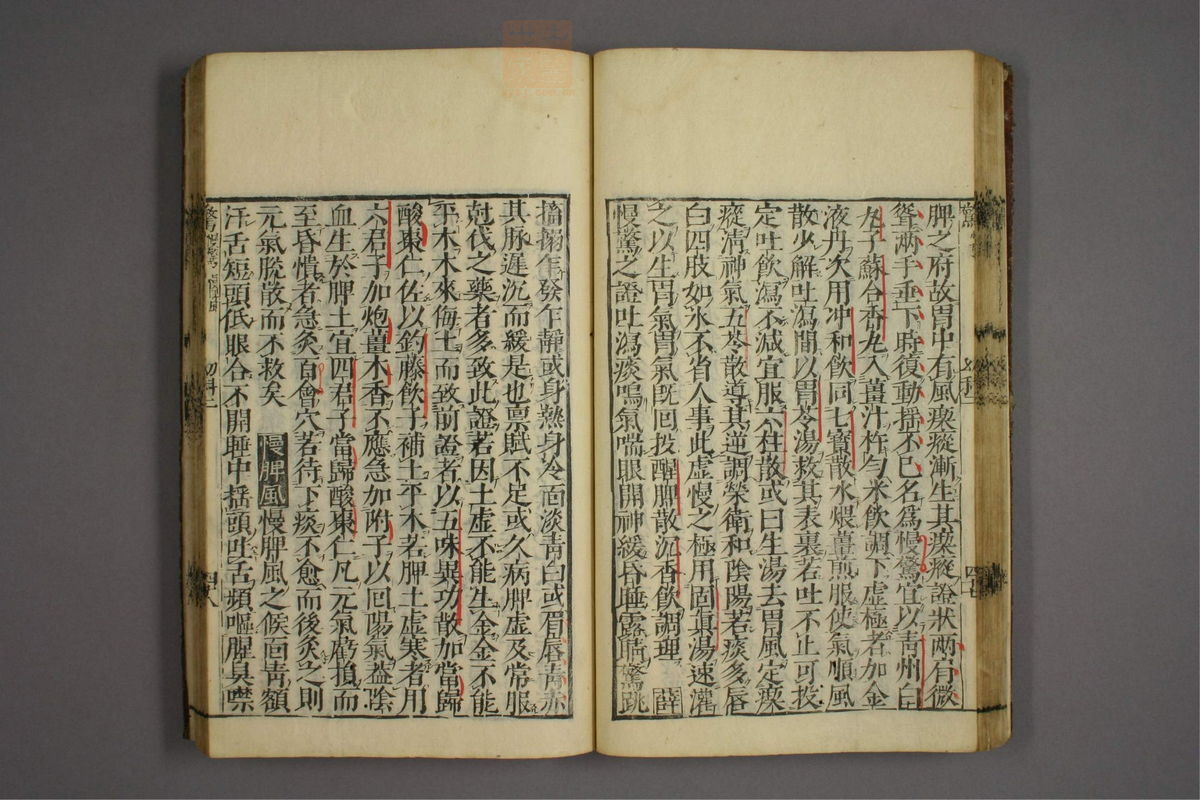 脾之府故胃中有風瘈瘲漸生其瘈瘲證狀兩肩微
聳兩手垂下時復動搖不已名爲慢驚宜以青州白
丸子蘇合香丸入薑汁杵勻米飲調下虛極者加金
液丹次用冲和飲同七寶散水煨薑煎服使氣順風
散少解吐瀉間以胃苓湯救其表裏若吐不止可投
定吐飲瀉不減宜服六柱散或日生湯去胃風定瘈
瘲淸神氣五苓散導其逆調榮衛和陰陽若痰多唇
白四肢如冰不省人事此虛慢之極用固眞湯速灌
之以生胃氣胃氣旣回投醒脾散沉香飲調理 薛
慢驚之證吐瀉痰鳴氣喘眼開神緩昏睡露睛驚跳
搐搦乍發乍靜或身熱身冷面淡靑白或眉唇靑赤
其脉遲沉而緩是也禀賦不足或久病脾虛及常服
尅伐之藥者多致此證若因土虛不能生金金不能
平木木來侮土而致前證者以五味異功散加當歸
酸棗仁佐以釣藤飲子補土平木若脾土虛寒者用
六君子加炮薑木香不應急加附子以回陽氣蓋陰
血生於脾土宜四君子當歸酸棗仁凡元氣虧損而
至昏憒者急灸百會穴若待下痰不愈而後灸之則
元氣脫散而不救矣 慢脾風 慢脾風之候面靑額
汗舌短頭低眼合不開睡中搖頭吐舌頻嘔腥臭噤